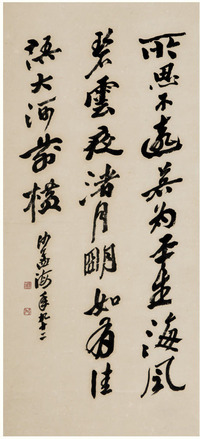 所思不遠若为平生海風
碧雲夜渚月明如有佳
語大河前横
沙孟海年九十二